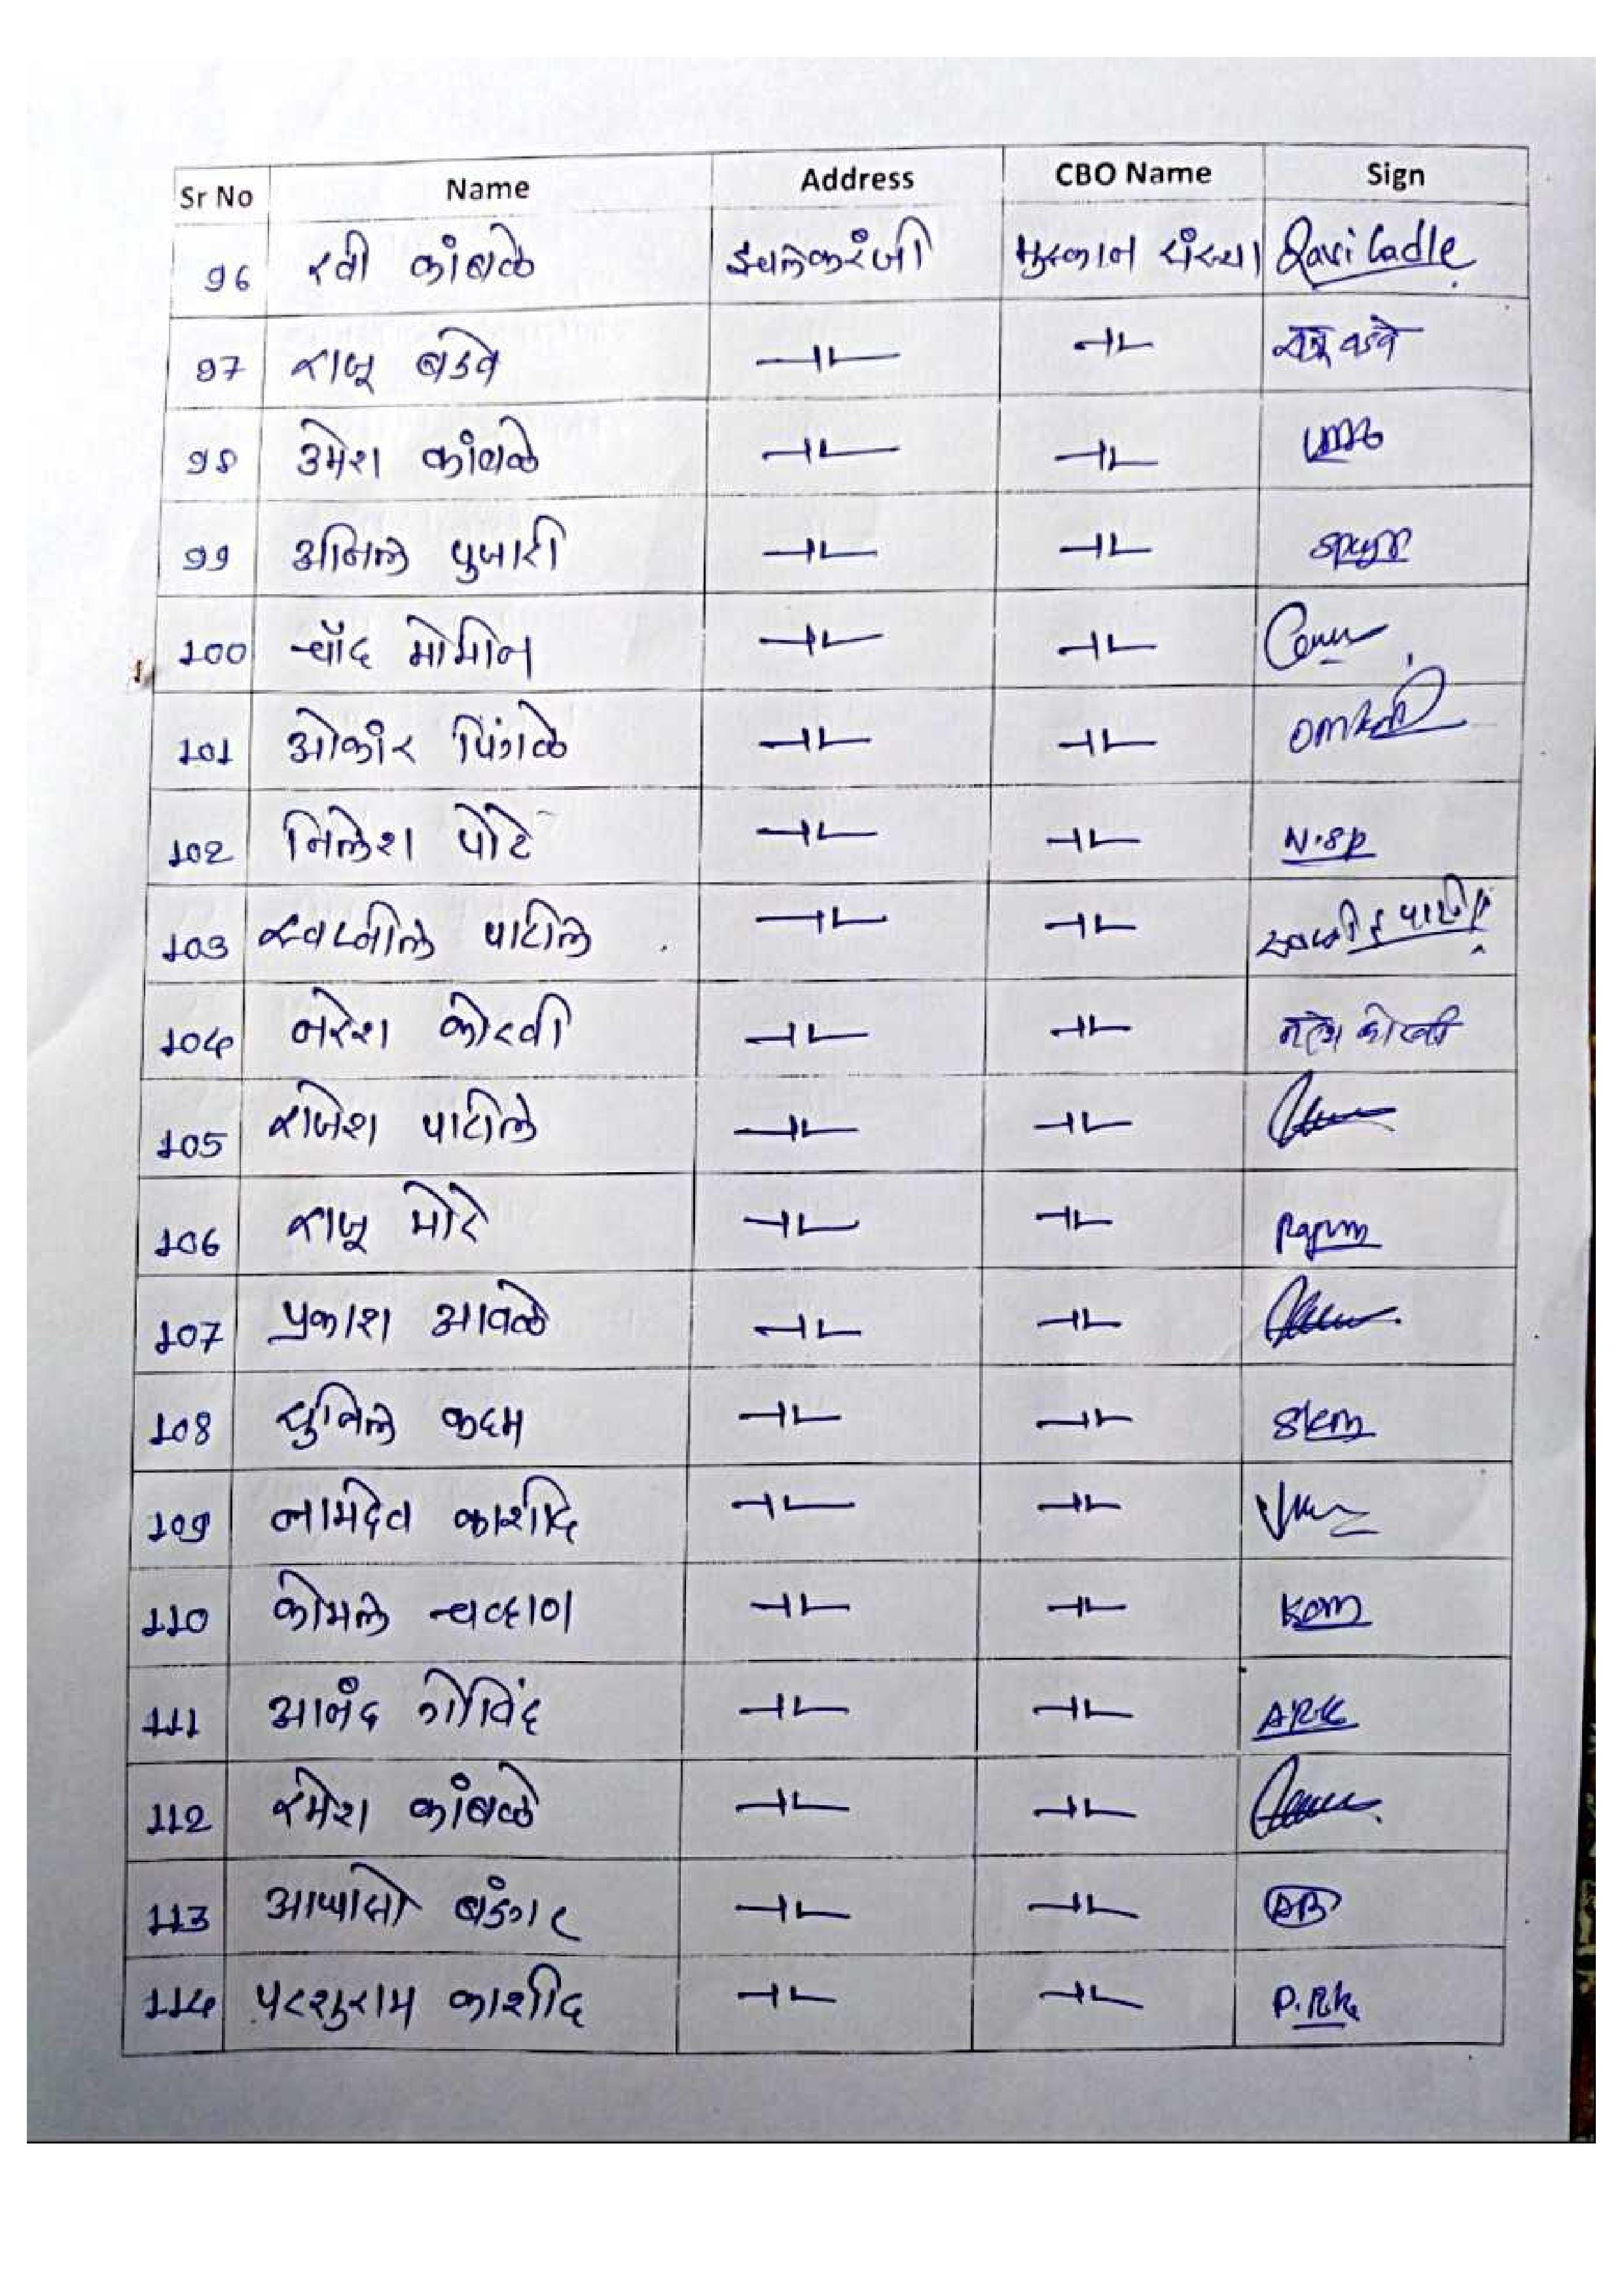 Sr No Name Address CBO Name Sign
96 रवी कांबळे इचलकरंजी मुस्कान संस्था Ravi Cadle
97 राजू बडवे ⊣⊢ ⊣⊢ राजू बडवे
98 उमेश कांबळे ⊣⊢ ⊣⊢
99 अनिल पुजारी ⊣⊢ ⊣⊢
100 चाँद मोमीन ⊣⊢ ⊣⊢
101 ओकांर पिंगळे ⊣⊢ ⊣⊢
102 निलेश पोटे ⊣⊢ ⊣⊢ N.SP
103 स्वप्नील पाटील ⊣⊢ ⊣⊢
104 नरेश कोरवी ⊣⊢ ⊣⊢ नरेश कोरवी
105 राजेश पाटील ⊣⊢ ⊣⊢
106 राजू मोरे ⊣⊢ ⊣⊢
107 प्रकाश आवळे ⊣⊢ ⊣⊢
108 सुनिल कदम ⊣⊢ ⊣⊢ Skm
109 नामदेव काशीद ⊣⊢ ⊣⊢
110 कोमल चव्हाण ⊣⊢ ⊣⊢ Kom
111 आनंद गोविंद ⊣⊢ ⊣⊢ ARK
112 रमेश कांबळे ⊣⊢ ⊣⊢
113 आप्पासो बंडगर ⊣⊢ ⊣⊢ AB
114 परशुराम काशीद ⊣⊢ ⊣⊢ P.RK